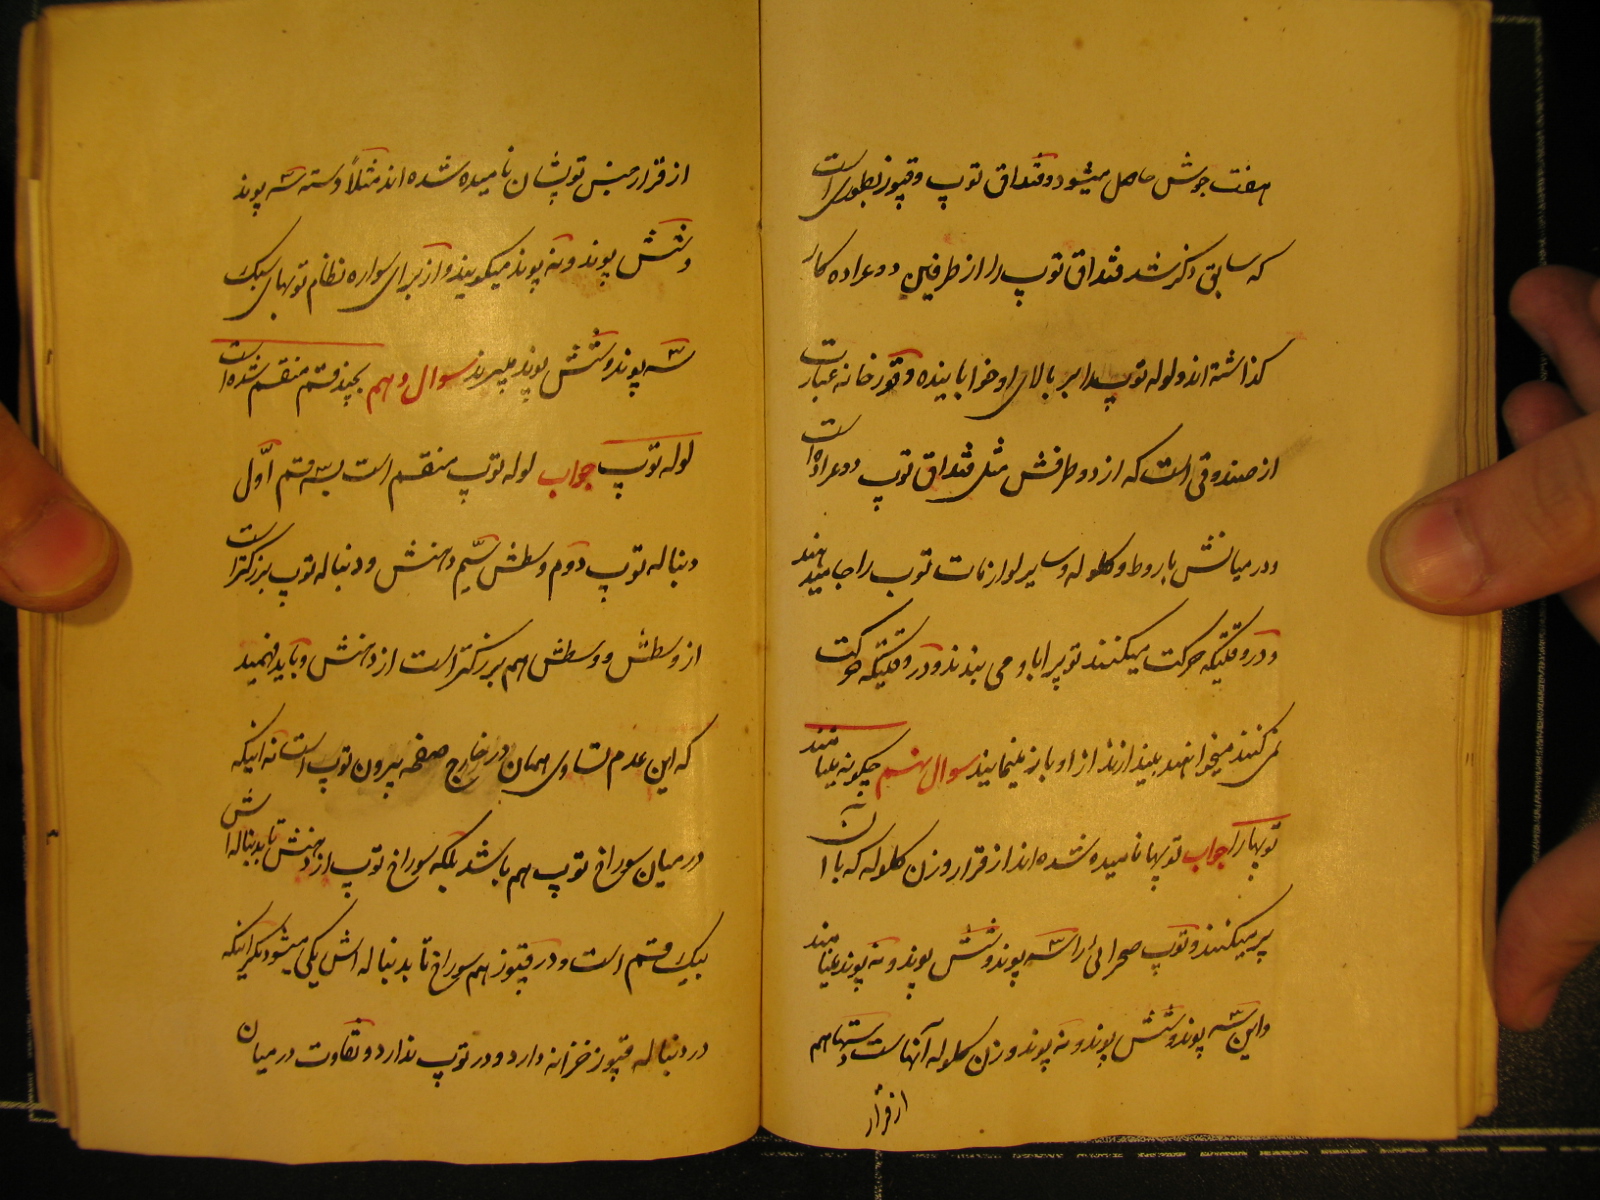 هفت جوش حاصل میشود و قنداق توپ و قپوز بطوری است
که سابق ذکر شد قنداق توپ را از طرفین دو عراده کار
کذاشته اند و لوله توپ را بر بالای او خوابا بنده و قورخانه عبارت
از صندوقی است که از دو طرفش مثل قنداق توپ دو عراده است
و در میانش باروط و کلوله و سایر لوازمات توپ را جا میدهند
و در وقتیکه حرکت میکنند توپرا با و می بندند و در وقتیکه حرکت
نمی کنند میخواهند بیندازند از او باز مینمایند سوال نهم چکونه مینامند
توپها را جواب توپها نامیده شده اند از قرار وزن کلوله که با آن
پر میکنند و توپ صحرائی را سه پوند و شش پوند و نه پوند مینامند
و این سه پوند و شش پوند و نه پوند وزن کلوله آنهاست و دستها هم
از قرار
از قرار جنس توپشان نامیده شده اند مثلاً دسته سه پوند
و شش پوند و نه پوند میکویند و از برای سواره نظام توپهای سبک
سه پوند و شش پوند میبرند سوال دهم بچند قسم منقسم شده است
لوله توپ جواب لوله توپ منقسم است بسه قسم اوّل
دنباله توپ دوم وسطش سیّم دهنش و دنباله توپ بزرکتر است
از وسطش و وسطش هم بزرکتر است از دهنش و باید فهمید
که این عدم تساوی همان در خارج صفحه بیرون توپ است نه اینکه
در میان سوراخ توپ هم باشد بلکه سوراخ توپ از دهنش تا بدنباله اش
یک قسم است و در قپوز هم سوراخ تا بدنباله اش یکی میشود مکر اینکه
در دنباله قپوز خزانه دارد و در توپ ندارد و تفاوت در میان